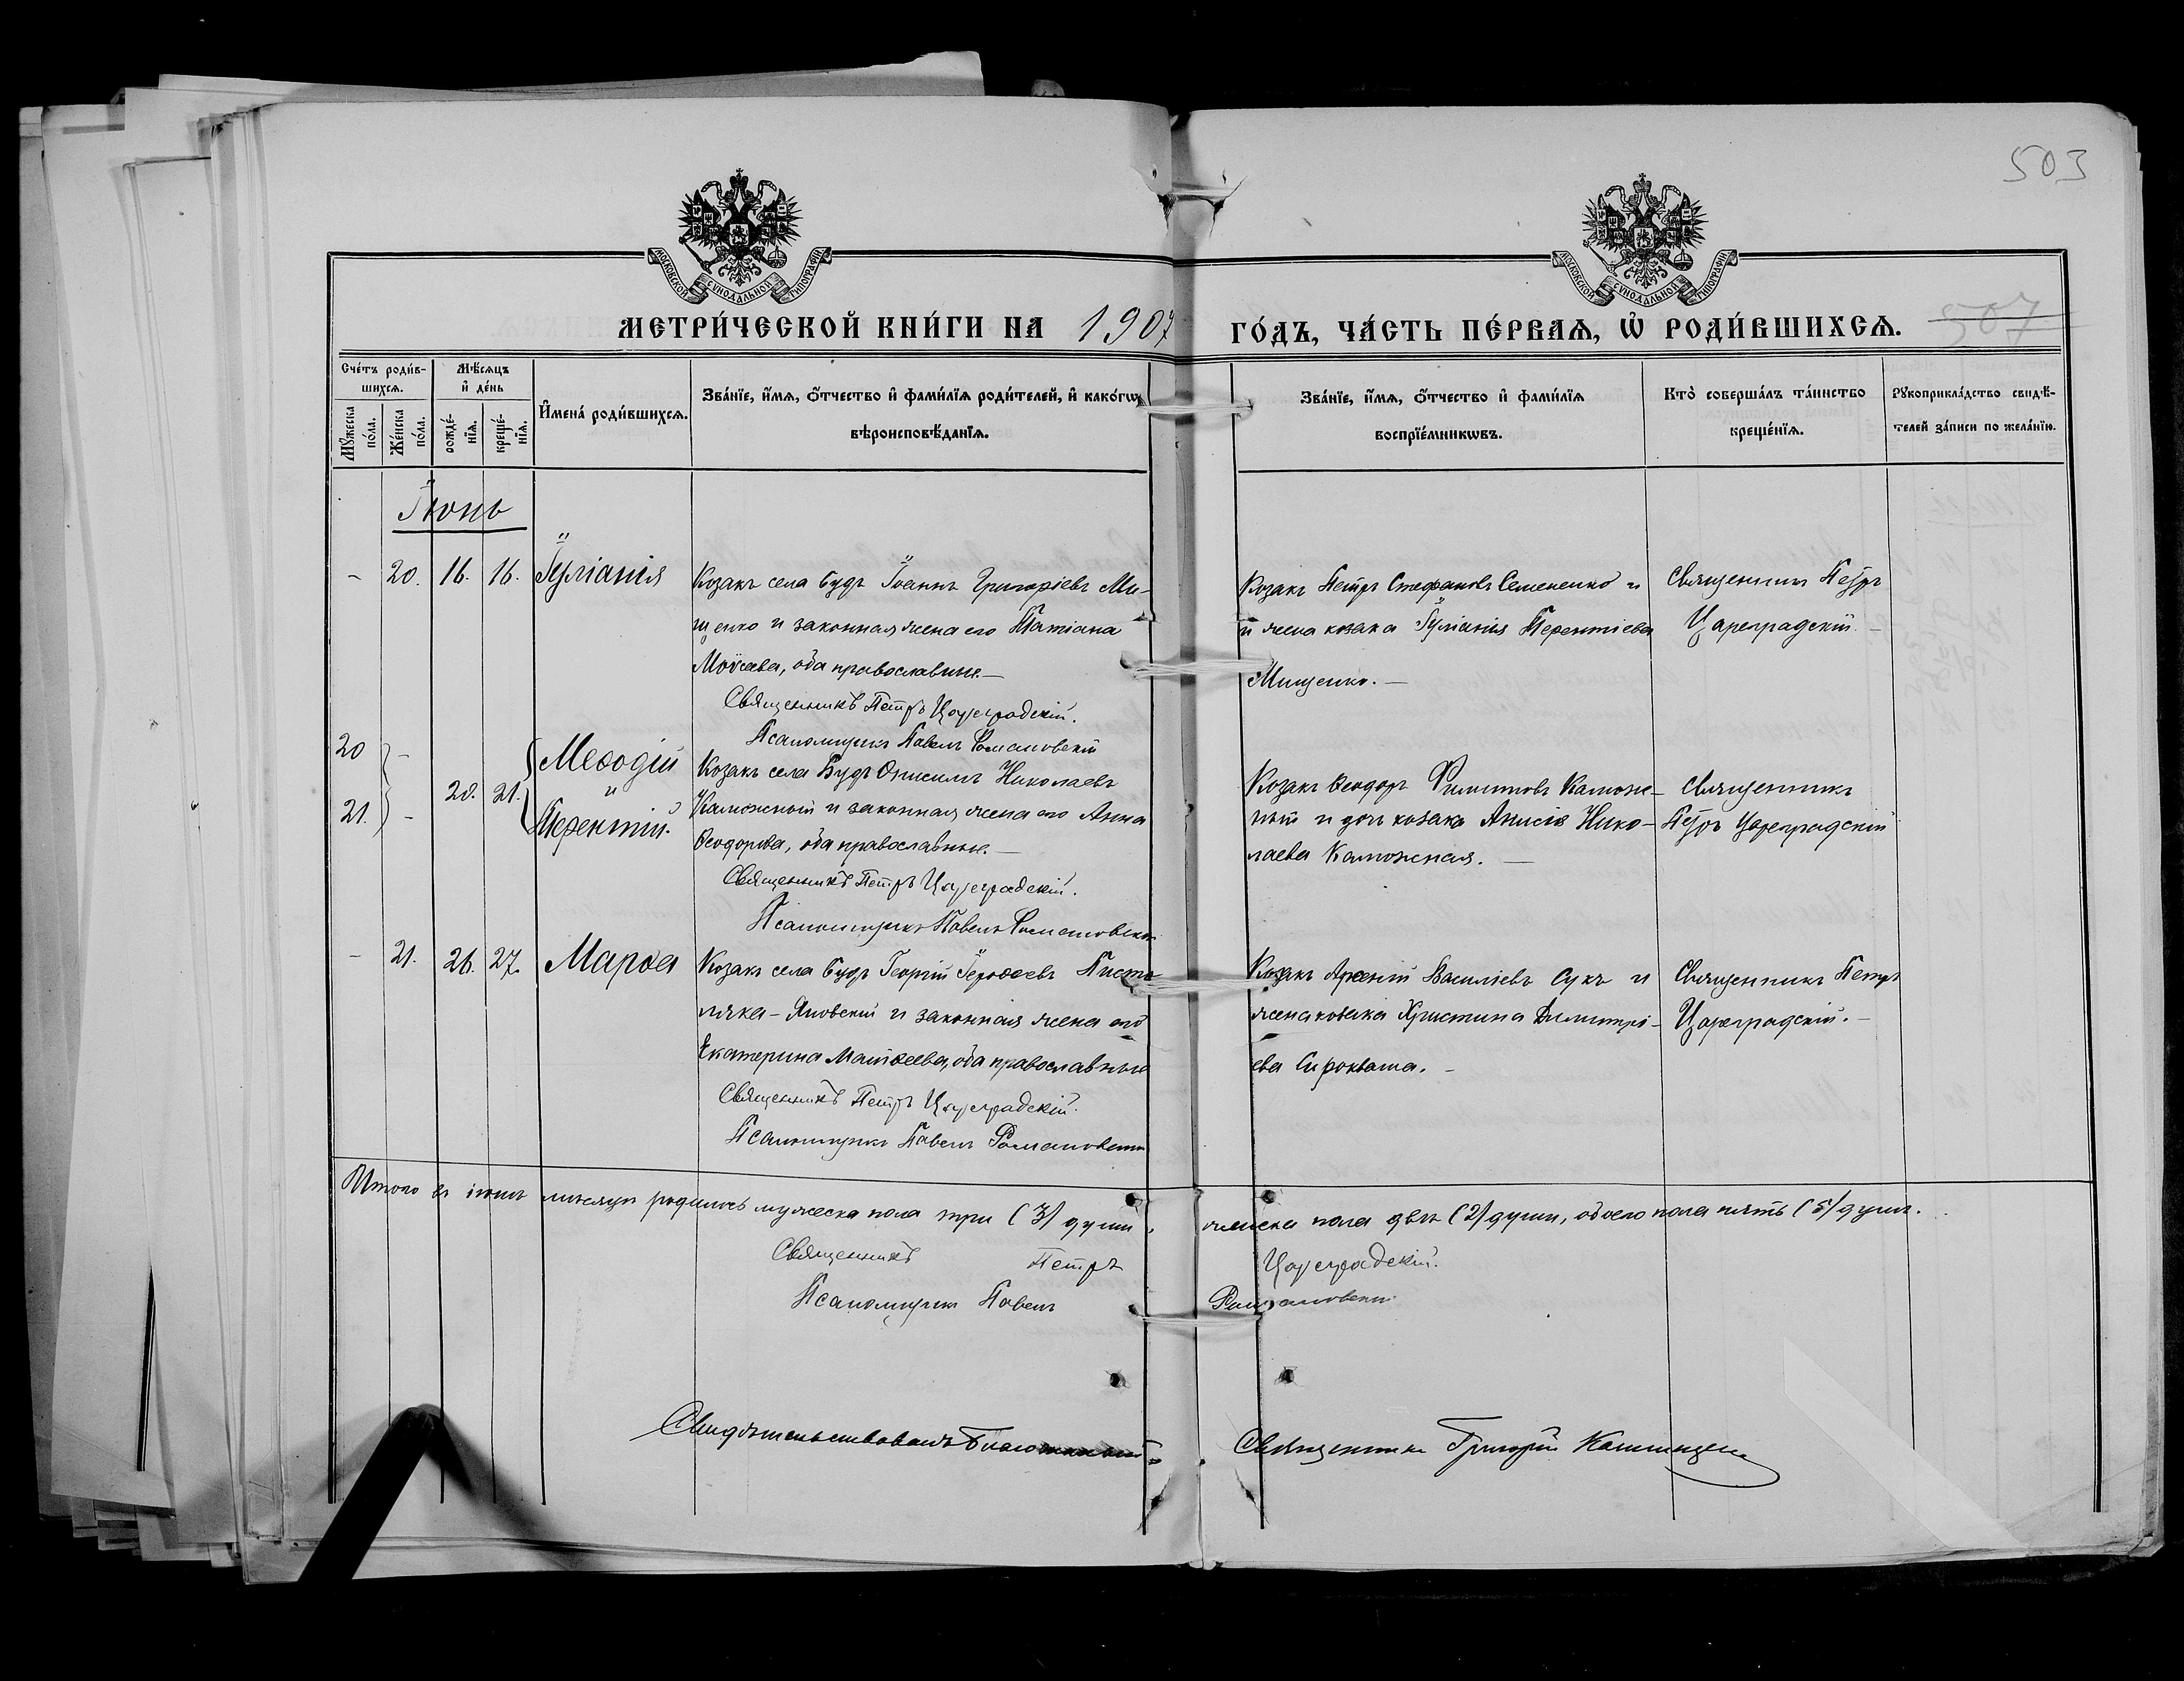 503
МОСКОВСКОЙ СУНОДАЛЬНОЙ ТИПОГРАФІИ
МОСКОВСКОЙ СУНОДАЛЬНОЙ ТИПОГРАФІИ
МЕТРИ́ЧЕСКОЙ КНИ́ГИ НА 1907 ГО́ДЪ, ЧА́СТЬ ПЕ́РВАѦ, Ѡ҆ РОДИ́ВШИХСѦ.
507
Сче́тъ роди́в-
шихсѧ.
Мꙋжеска по́ла.
Же́нска по́ла.
Мѣ́сѧцъ
и҆ де́нь
рожде́-
нїѧ.
креще́-
нїѧ.
И҆мена̀ роди́вшихсѧ.
Зва́нїе, и҆́мѧ, ѻ҆́тчество и҆ фами́лїѧ роди́телей, и҆ како́гѡ
вѣроисповѣ́данїѧ.
Зва́нїе, и҆́мѧ, ѻ҆́тчество и҆ фами́лїѧ
воспрїе́мникѡвъ.
Кто̀ соверша́лъ та́инство
креще́нїѧ.
Рꙋкоприкла́дство свидѣ́-
телей за́писи по жела́нїю.
Іюнь
- 20. 16. 16. Іуліанія
Козакъ села Будъ Іоаннъ Григоріевъ Ми-
щенко и законная жена его Татіана
Моѵсеева, оба православные.—
Священникъ Петръ Цареградскій.
Псаломщикъ Павелъ Романовскій
Козакъ Петръ Стефановъ Семененко и
и жена козака Іуліанія Терентіева
Мищенко.—
Священникъ Петръ
Цареградскій.—
20 - Меѳодій
21. - 20. 21. Терентій.
Козакъ села Будъ Онисимъ Николаевъ
Каложный и законная жена его Анна
Ѳеодорова, оба православные.—
Священникъ Петръ Цареградскій.
Псаломщикъ Павелъ Романовскій
Козакъ Ѳеодоръ Филиповъ Калож-
ный и дочь козака Анисія Нико-
лаева Каложная.—
Священникъ
Петръ Цареградскій
- 21. 26. 27. Марѳа
Козакъ села Будъ Георгій Іероѳеевъ
Яновскій и законная жена его
Екатерина Матѳеева, оба православные
Священникъ Петръ Цареградскій.
Псаломщикъ Павелъ Романовскій
Козакъ Арсеній Василіевъ Сукъ и
жена козака Христина Димитрі-
ева Сирокваша.—
Священникъ Петръ
Цареградскій.—
Итого въ іюнѣ мѣсяцѣ родилось мужеска пола три (3) души, женска пола двѣ (2) души, обоего пола пять (5) душъ.
Священникъ Петръ Цареградскій.
Псаломщикъ Павелъ Романовскій
Свидѣтельствовалъ
Священникъ Григорій